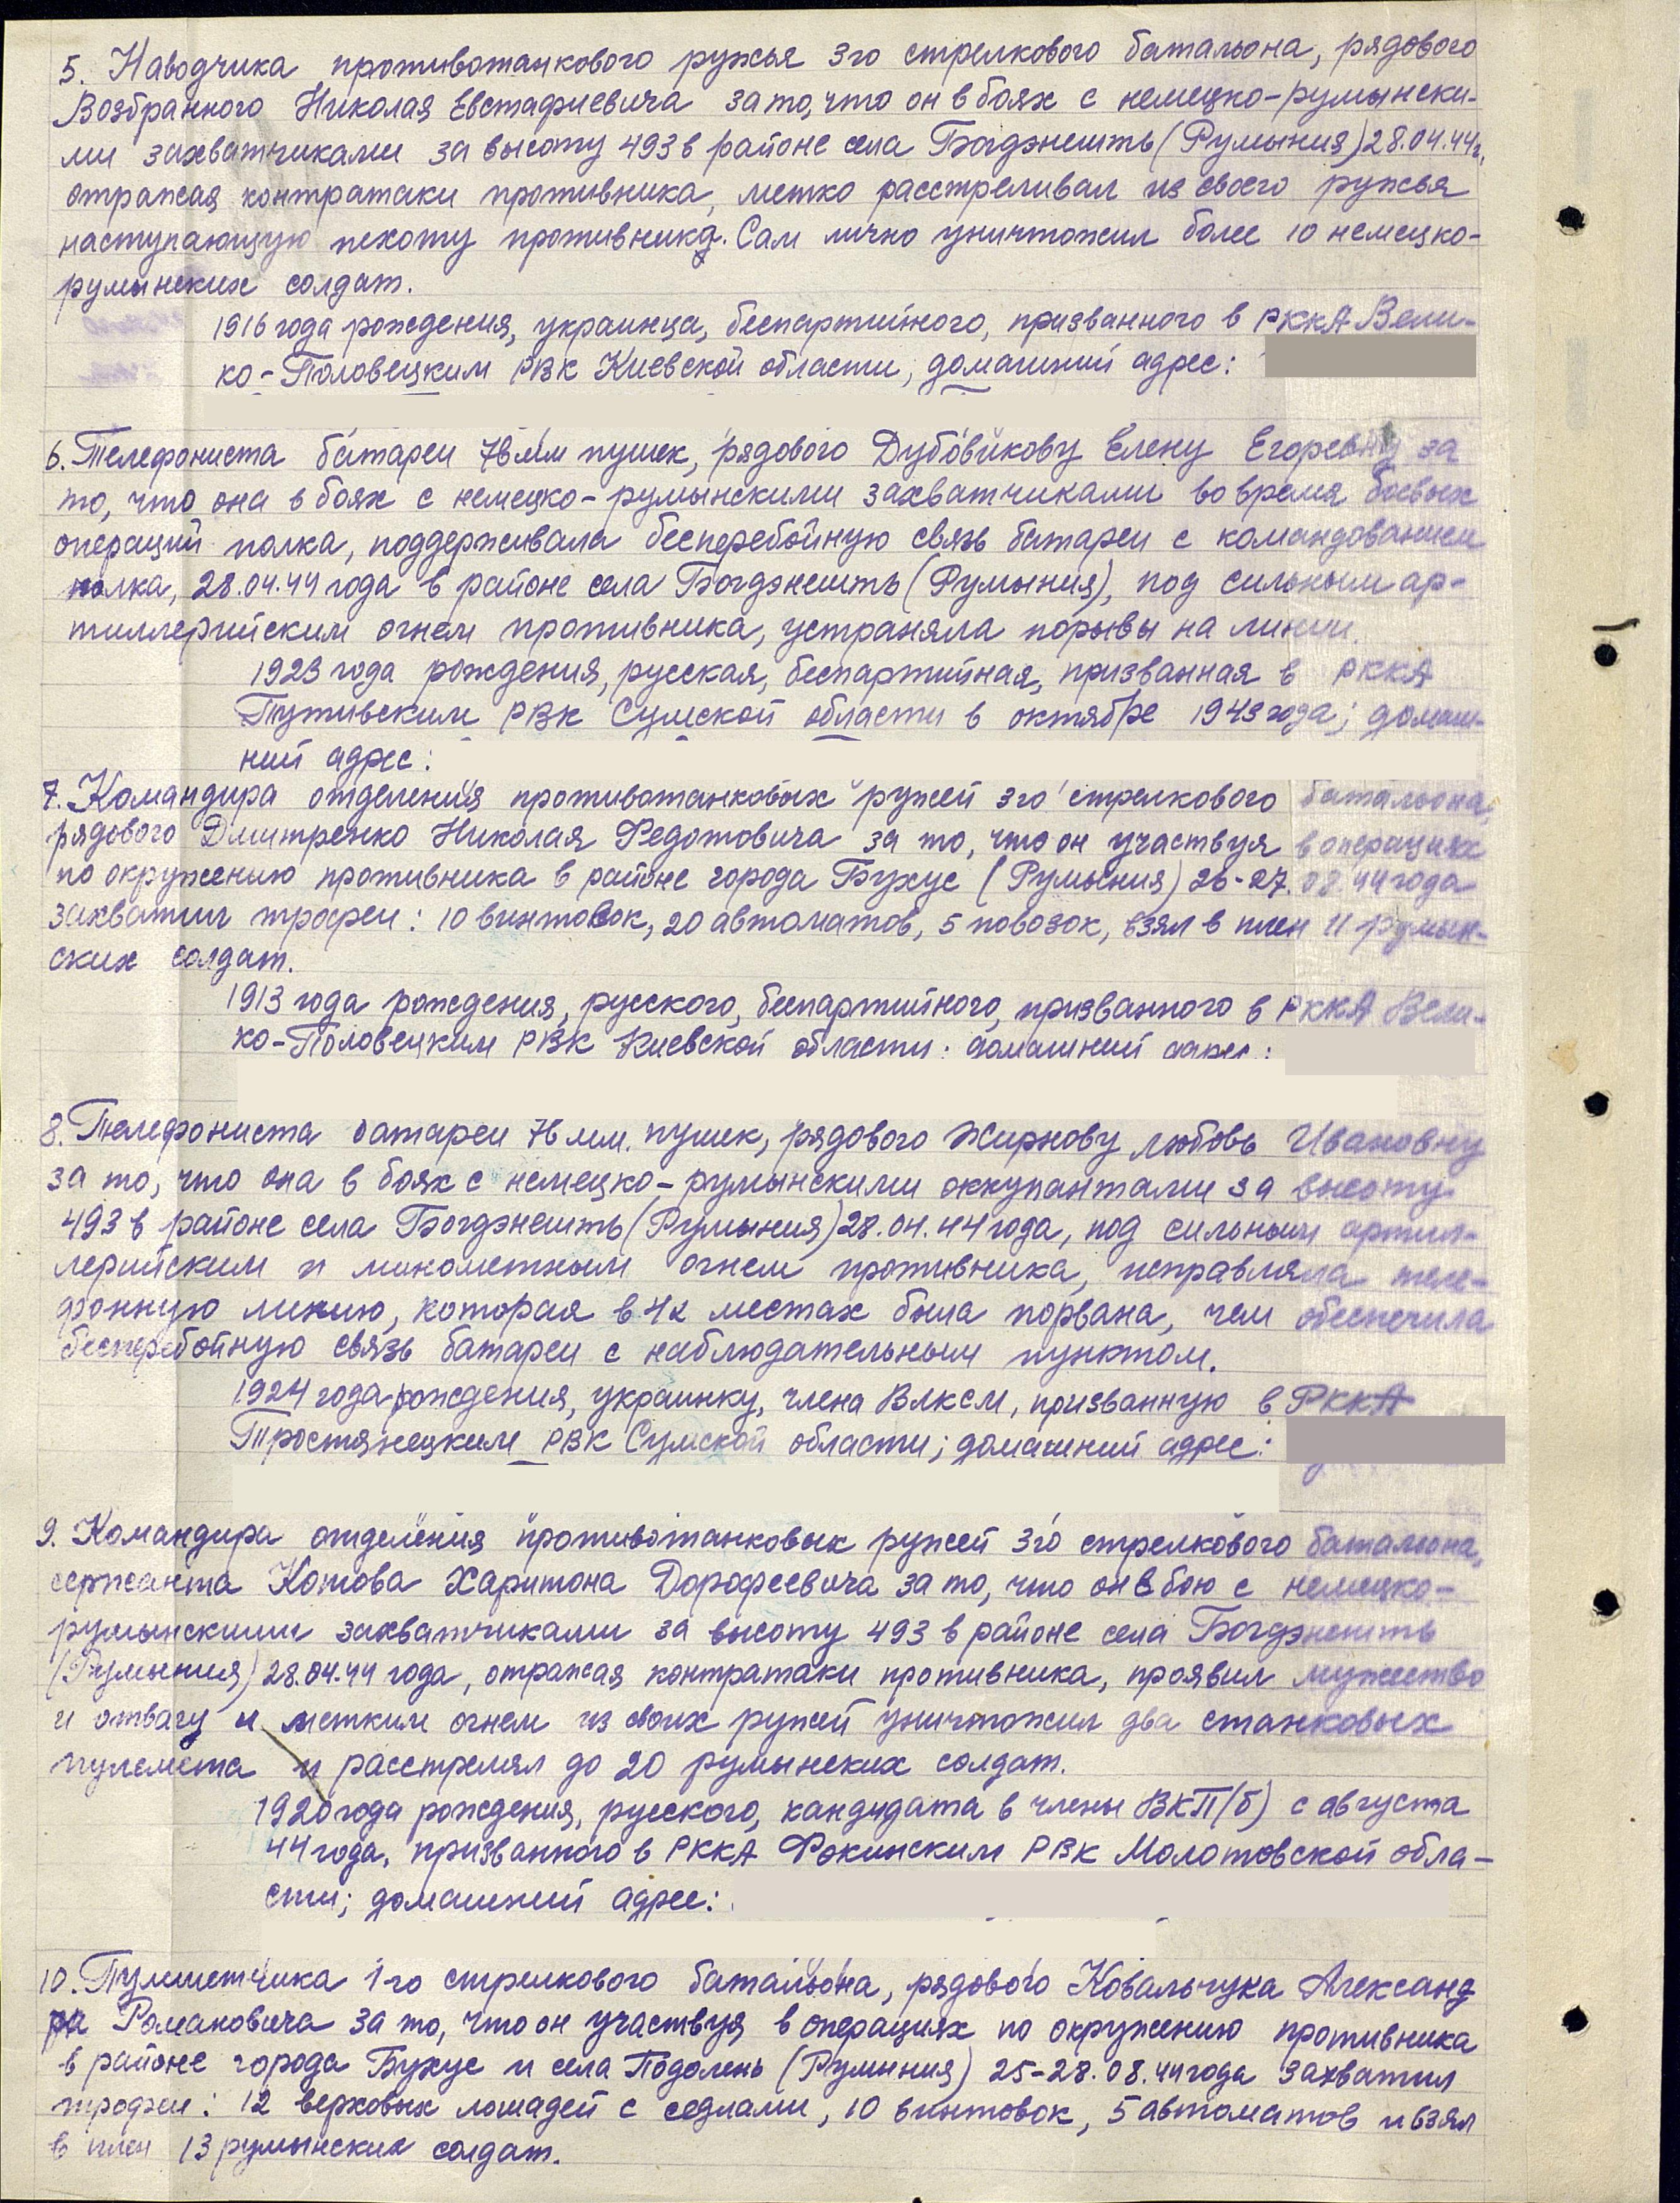 5. Наводчика противотанкового ружья 3го стрелкового батальона, рядового
Возбранного Николая Евстафиевича за то, что он в боях с немецко-румынски-
ми захватчиками за высоту 493 в районе села Богдэнешть (Румыния) 28.04.44г.
отражая контратаки противника, метко расстреливал из своего ружья
наступающую пехоту противника. Сам лично уничтожил более 10 немецко-
румынских солдат.
1916 года рождения, украинца, беспартийного, призванного в РККА Вели-
ко-Половецким РВК Киевской области, домашний адрес:
6. Телефониста батареи 76 мм пушек, рядового Дубовикову Елену Егоревну за
то, что она в боях с немецко-румынскими захватчиками во время боевых
операций полка, поддерживала бесперебойную связь батареи с командованием
полка, 28.04.44 года в районе села Богдэнешть (Румыния), под сильным ар-
тиллерийским огнем противника, устраняла порывы на линии.
1923 года рождения, русская, беспартийная, призванная в РККА
Путивским РВК Сумской области в октябре 1943 года; домаш-
ний адрес:
7. Командира отделения противотанковых ружей 3го стрелкового батальона,
рядового Дмитренко Николая Федотовича за то, что он участвуя в операциях
по окружению противника в районе города Бухус (Румыния) 26-27.08.44 года
захватил трофеи: 10 винтовок, 20 автоматов, 5 повозок, взял в плен 11 румын-
ских солдат.
1913 года рождения, русского, беспартийного, призванного в РККА Вели-
ко-Половецким РВК Киевской области: домашний адрес:
8. Телефониста батареи 76 мм. пушек, рядового Жирнову Любовь Ивановну
за то, что она в боях с немецко-румынскими оккупантами за высоту
493 в районе села Богдэнешть (Румыния) 28.04.44 года, под сильным артил-
лерийским и минометным огнем противника, исправляла теле-
фонную линию, которая в 42 местах была порвана, чем обеспечила
бесперебойную связь батареи с наблюдательным пунктом.
1924 года рождения, украинку, члена ВЛКСМ, призванную в РККА
Тростянецким РВК Сумской области; домашний адрес:
9. Командира отделения противотанковых ружей 3го стрелкового батальона,
сержанта Котова Харитона Дорофеевича за то, что он в бою с немецко-
румынскими захватчиками за высоту 493 в районе села Богдэнешть
(Румыния) 28.04.44 года, отражая контратаки противника, проявил мужество
и отвагу и метким огнем из своих ружей уничтожил два станковых
пулемета и расстрелял до 20 румынских солдат.
1920 года рождения, русского, кандидата в члены ВКП(б) с августа
44 года, призванного в РККА Фокинским РВК Молотовской обла-
сти; домашний адрес:
10. Пулеметчика 1го стрелкового батальона, рядового Ковальчука Александ
ра Романовича за то, что он участвуя в операциях по окружению противника
в районе города Бухус и села Подолень (Румыния) 25-28.08.44 года захватил
трофеи: 12 верховых лошадей с седлами, 10 винтовок, 5 автоматов и взял
в плен 13 румынских солдат.